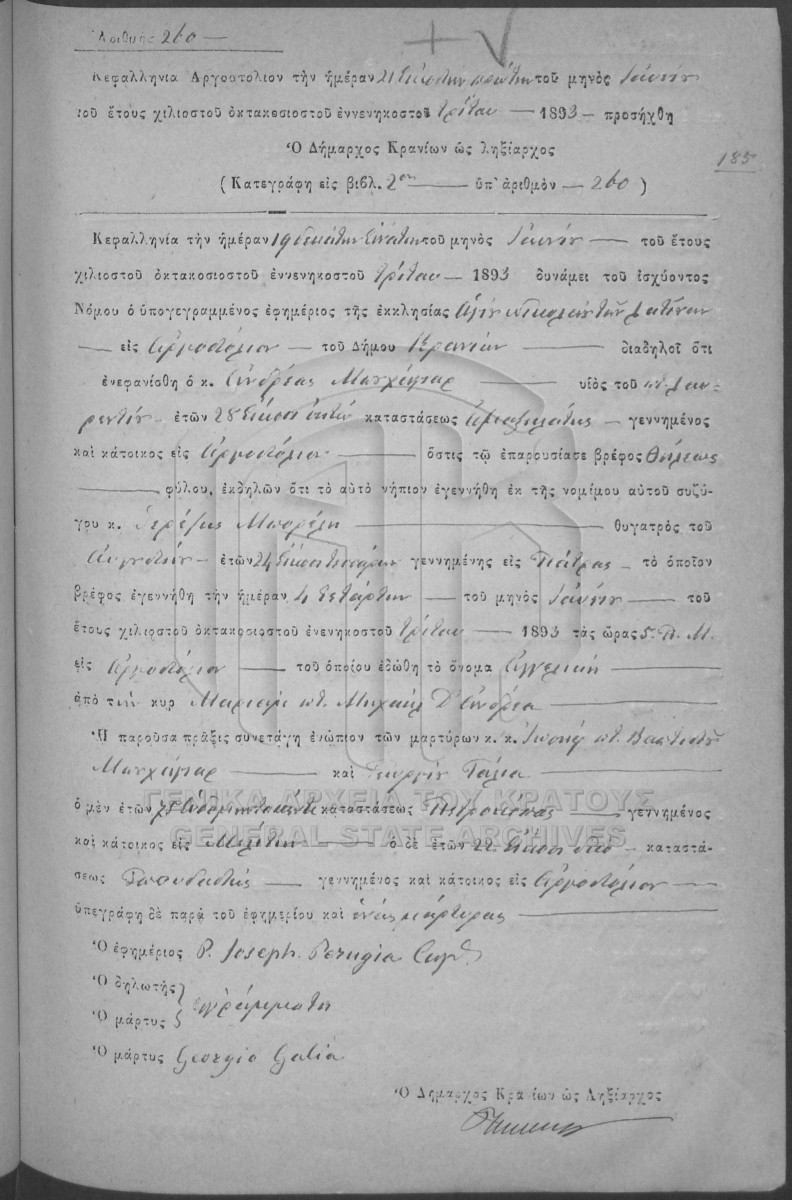 Ἀριθμὸς 260 —
+ V
Κεφαλληνία Αργοστολιον τὴν ἡμέραν 21 Εἰκοστην πρώτην τοῦ μηνὸς Ἰουνίου
τοῦ ἔτους χιλιοστοῦ ὀκτακοσιοστοῦ ἐννενηκοστοῦ τρίτου — 1893 — προσήχθη
Ὁ Δήμαρχος Κρανίων ὡς ληξίαρχος
185
(Κατεγράφη εἰς βιβλ. 2ον — ὑπ' ἀριθμὸν — 260)
Κεφαλληνία τὴν ἡμέραν 19 δεκάτην ἐνάτην τοῦ μηνὸς Ἰουνίου — τοῦ ἔτους
χιλιοστοῦ ὀκτακοσιοστοῦ ἐννενηκοστοῦ τρίτου — 1893 δυνάμει τοῦ ἰσχύοντος
Νόμου ὁ ὑπογεγραμμένος ἐφημέριος τῆς ἐκκλησίας Ἁγίου Νικολάου τῶν Λατίνων
— εἰς Ἀργοστόλιον — τοῦ Δήμου Κρανίων — διαδηλοῖ ὅτι
ἐνεφανίσθη ὁ κ. Ἀνδρέας — υἱὸς τοῦ ποτ. Λαυ-
ρεντίου — ἐτῶν 28 Εἴκοσι ὀκτώ καταστάσεως Ἁμαξηλάτης — γεννημένος
καὶ κάτοικος εἰς Ἀργοστόλιον — ὅστις τῷ ἐπαρουσίασε βρέφος θήλεως
— φύλου, ἐκδηλῶν ὅτι τὸ αὐτὸ νήπιον ἐγεννήθη ἐκ τῆς νομίμου αὐτοῦ συζύ-
γου κ. Τερέζης — θυγατρὸς τοῦ
Αυγουστίνου — ἐτῶν 24 Εἴκοσι τεσσάρων γεννημένης εἰς Πάτρας — τὸ ὁποῖον
βρέφος ἐγεννήθη τὴν ἡμέραν 4 τετάρτην — τοῦ μηνὸς Ἰουνίου — τοῦ
ἔτους χιλιοστοῦ ὀκτακοσιοστοῦ ἐνενηκοστοῦ τρίτου — 1893 τὰς ὥρας 5. Π. Μ.
εἰς Ἀργοστόλιον — τοῦ ὁποίου ἐδώθη τὸ ὄνομα Ἀγγελική —
ἀπὸ τὴν κυρ Μαριαγκ ποτ. Μιχαήλ Δ' Ἀνδρέα —
Ἡ παροῦσα πρᾶξις συνετάγη ἐνώπιον τῶν μαρτύρων κ. κ. Ἰωσήφ ποτ.
— καὶ Γεώργιον Γάλια —
ὁ μὲν ἐτῶν 75 Ἑβδομήντα πέντε καταστάσεως — γεννημένος
καὶ κάτοικος εἰς Μελίτην — ὁ δὲ ἐτῶν 22 Εἴκοσι δύο — καταστά-
σεως — γεννημένος καὶ κάτοικος εἰς Ἀργοστόλιον —
ὑπεγράφη δὲ παρὰ τοῦ ἐφημερίου καὶ ἑνὸς μάρτυρος —
ΓΕΝΙΚΑ ΑΡΧΕΙΑ ΤΟΥ ΚΡΑΤΟΥΣ
GENERAL STATE ARCHIVES
Ὁ ἐφημέριος P. Joseph Perugia Capp.
Ὁ δηλωτὴς } ἀγράμματοι
Ὁ μάρτυς
Ὁ μάρτυς Georgio Galia
Ὁ Δήμαρχος Κρανίων ὡς Ληξίαρχος